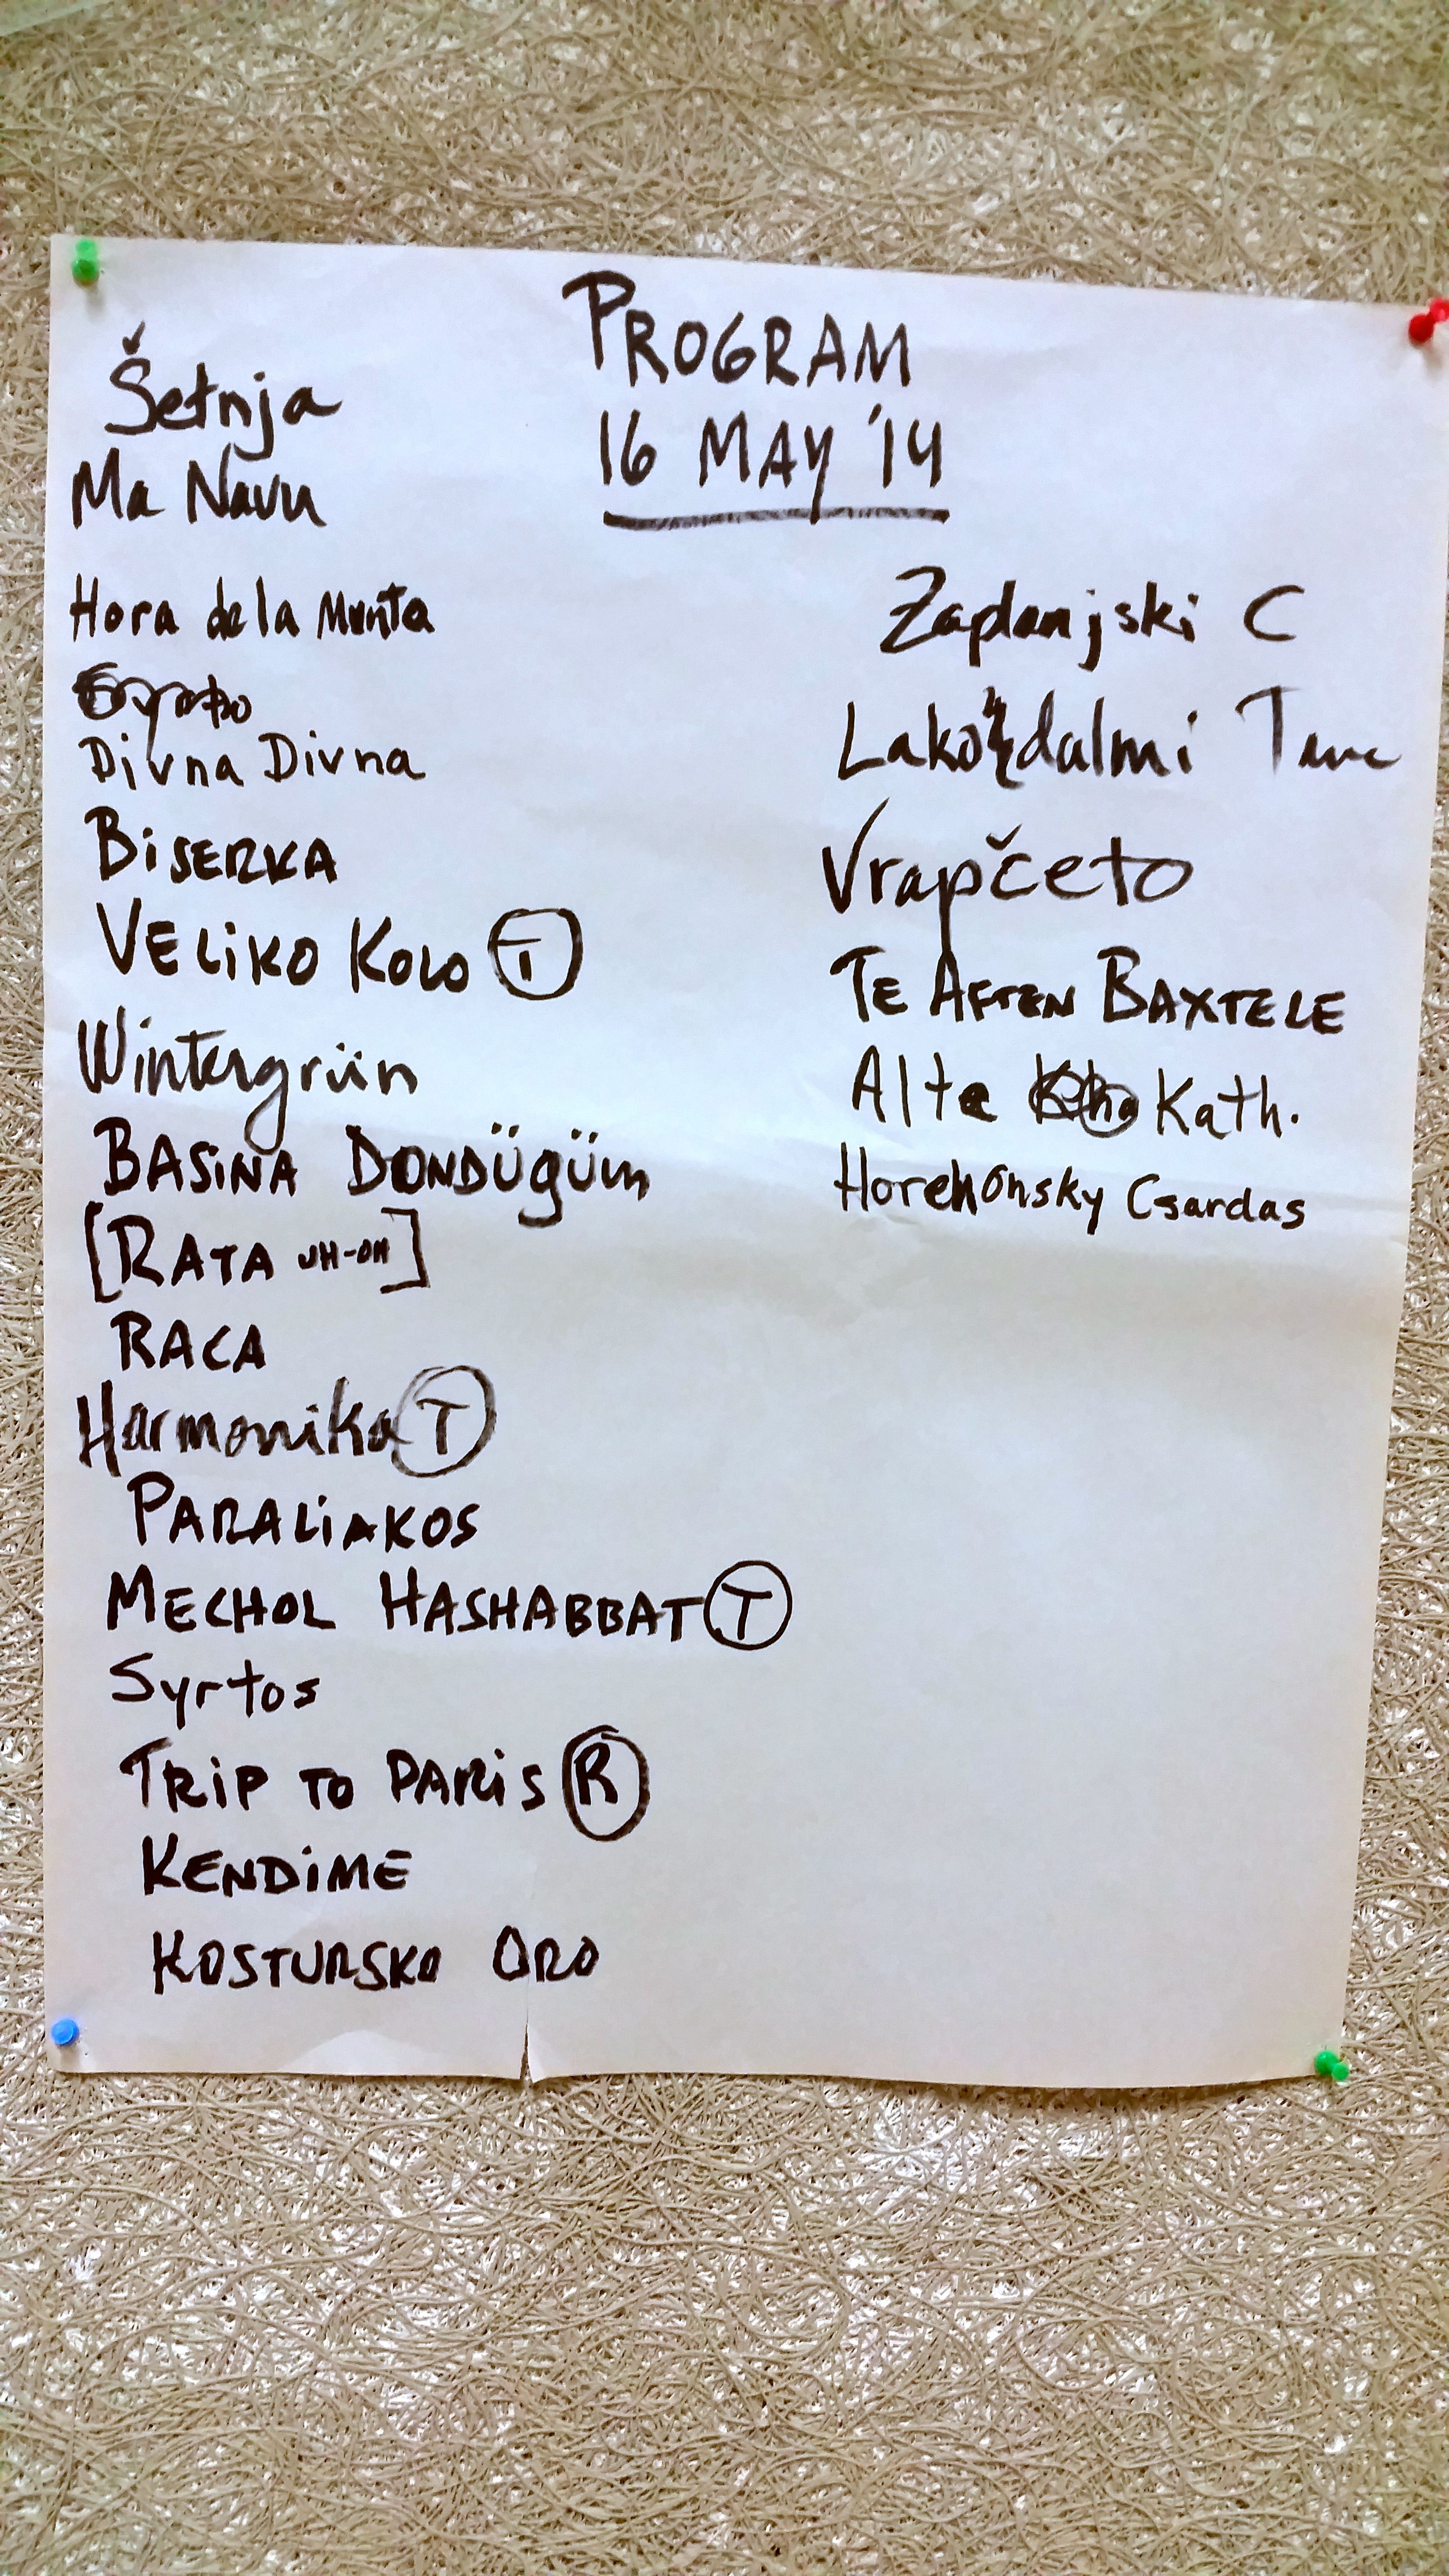 PROGRAM
16 MAY '14
Šetnja
Ma Navu
Hora de la Munta
Divna Divna
BiSERKA
VELiKO KOLO T
Wintergrün
BASiNA DONDÜgÜm
[RATA UH-OH]
RACA
Harmonika T
PARALiAKOS
MECHOL HASHABBAT T
Syrtos
TRiP TO PARiS R
KENDiME
KOSTURSKO ORO
Zaplanjski C
Lakodalmi
Vrapčeto
TE AFTEN BAXTELE
Alte Kath.
Horehonsky Csardas